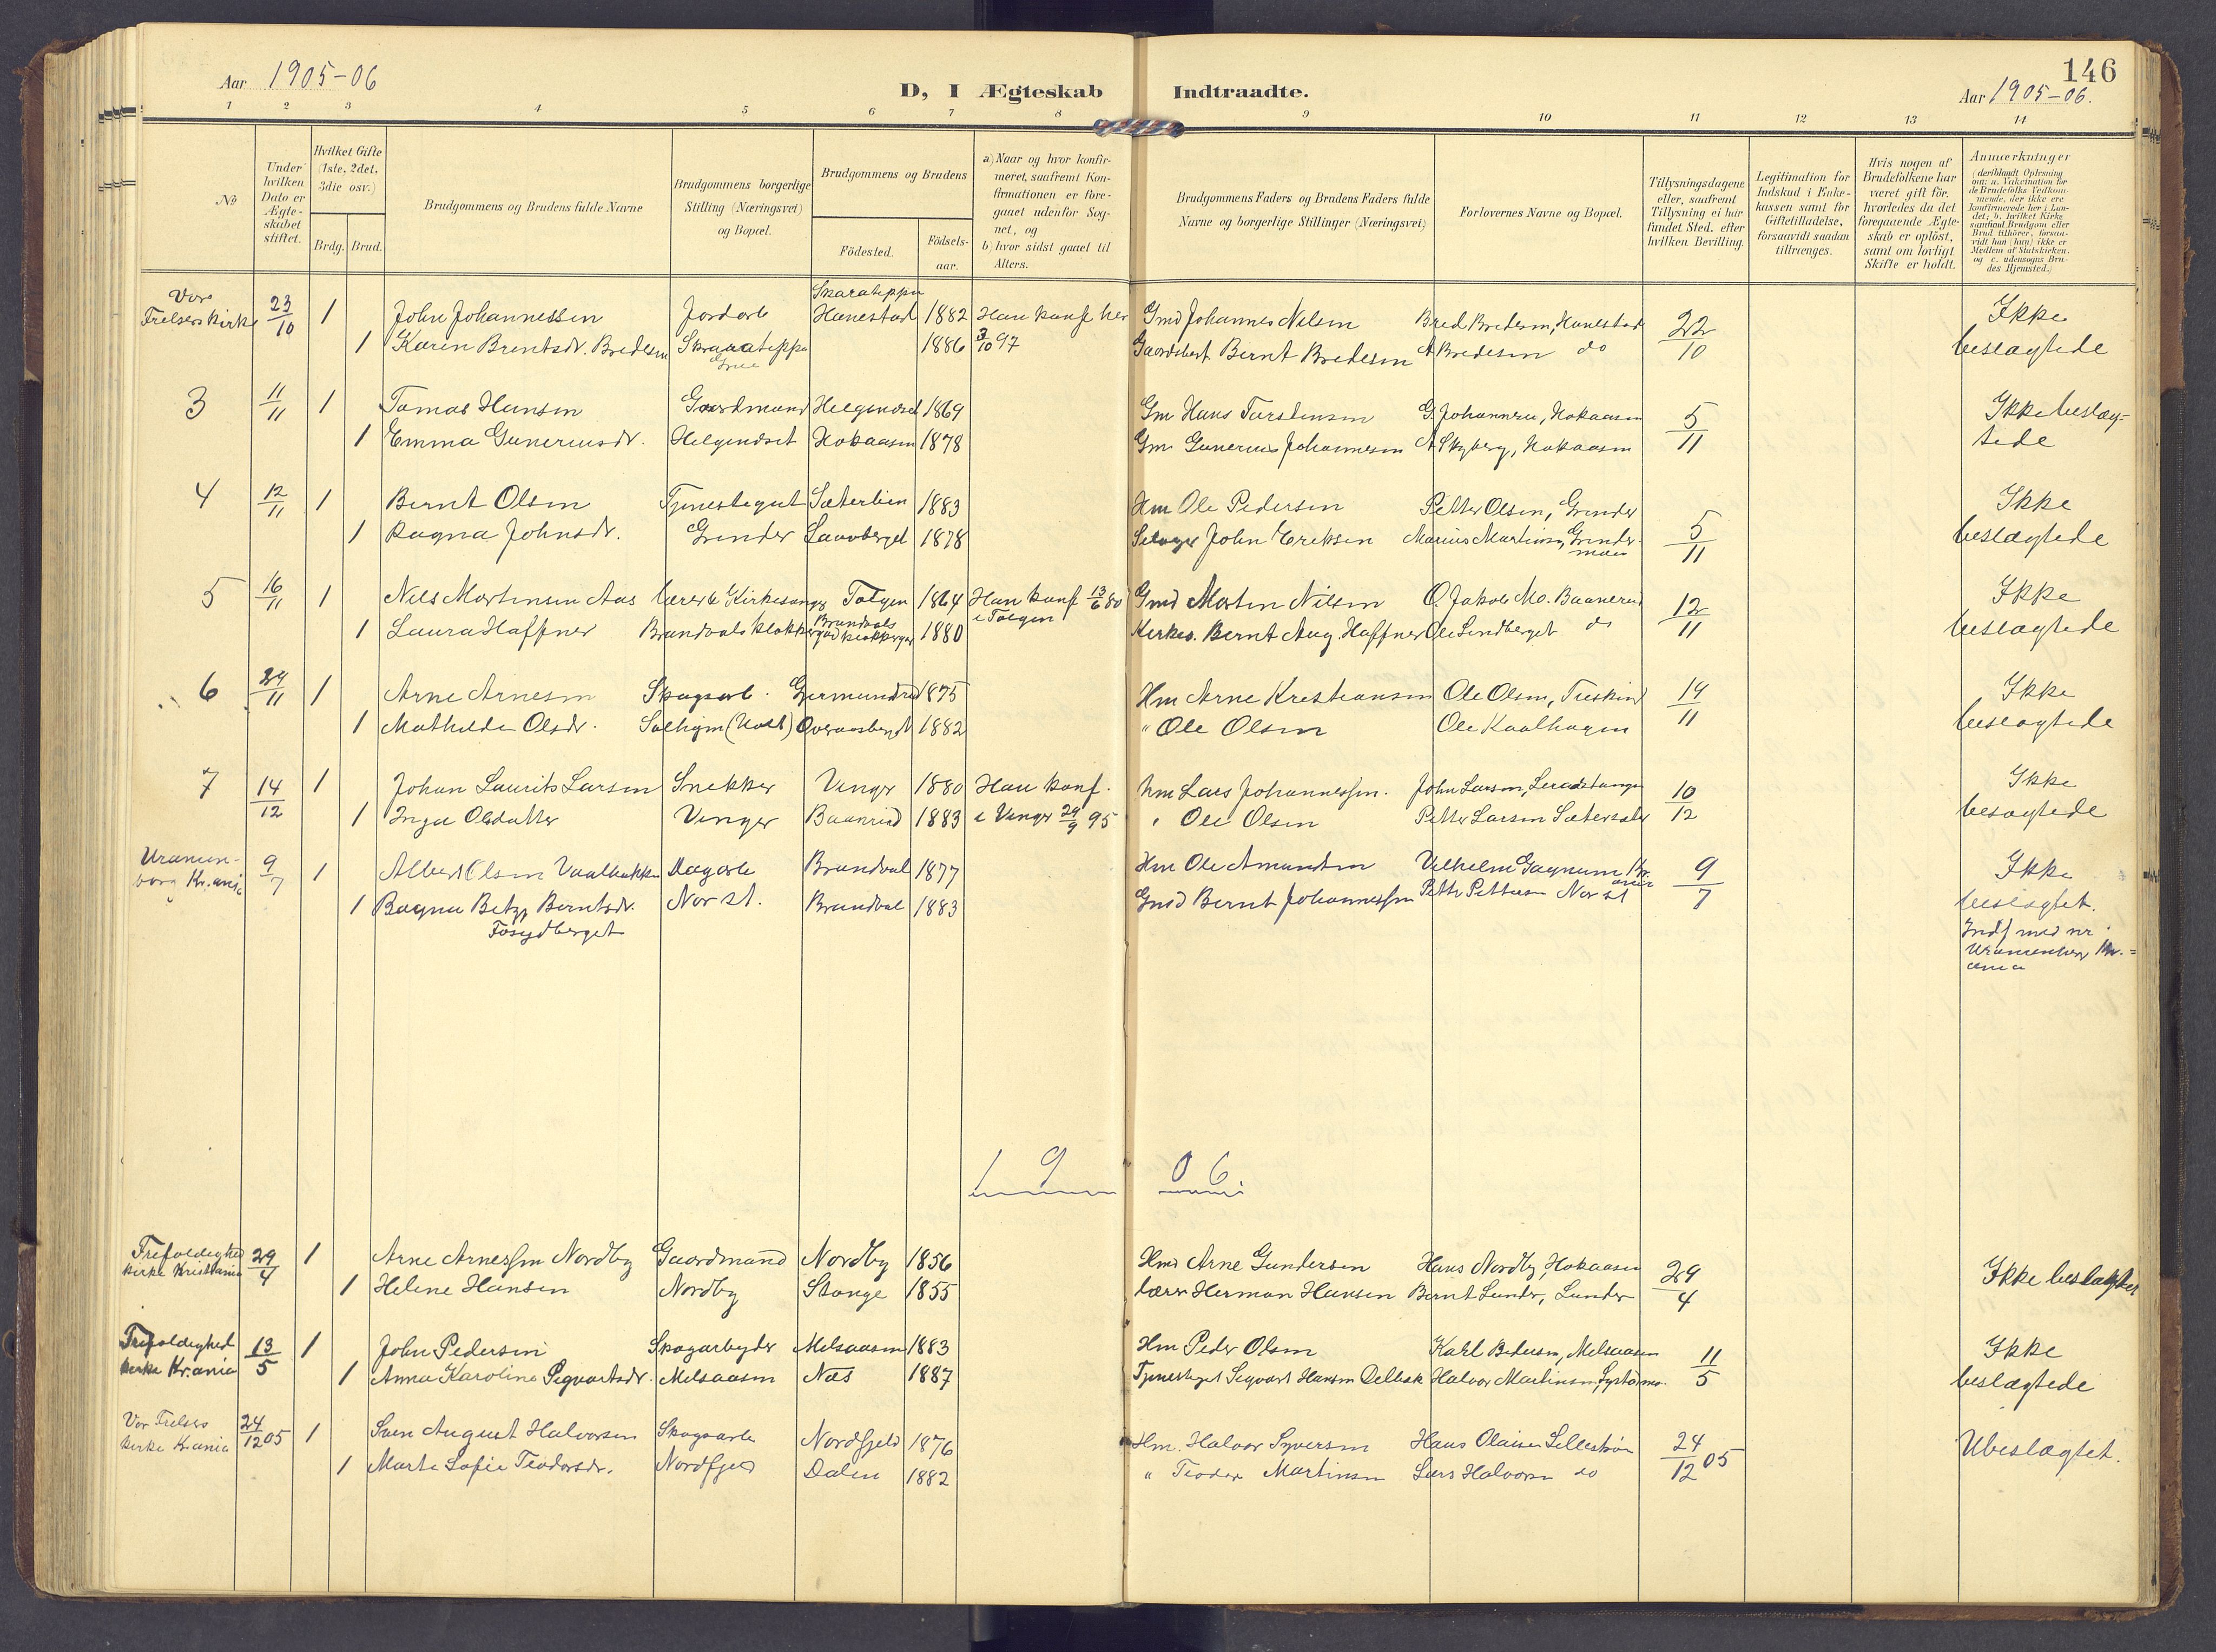 146
Aar 1905-06
D, I Ægteskab Indtraadte.
Aar 1905-06.
1 2 3 4 5 6 7 8 9 10 11 12 13 14
№
Under hvilken Dato er Ægteskabet stiftet.
Hvilket Gifte (1ste, 2det, 3die osv.)
Brdg. Brud.
Brudgommens og Brudens fulde Navne
Brudgommens borgerlige Stilling (Næringsvei) og Bopæl.
Brudgommens og Brudens
Födested. Födselsaar.
a) Naar og hvor konfirmeret, saafremt Konfirmationen er foregaaet udenfor Sognet, og
b) hvor sidst gaaet til Alters.
Brudgommens Faders og Brudens Faders fulde Navne og borgerlige Stillinger (Næringsvei)
Forlovernes Navne og Bopæl.
Tillysningsdagene eller, saafremt Tillysning ei har fundet Sted, efter hvilken Bevilling.
Legitimation for Indskud i Enkekassen samt for Giftetilladelse, forsaavidt saadan tiltrænges.
Hvis nogen af Brudefolkene har været gift för, hvorledes da det foregaaende Ægteskab er oplöst, samt om lovligt Skifte er holdt.
Anmærkninger (deriblandt Oplysning om: a. Vakcination for de Brudefolks Vedkommende, der ikke ere konfirmerede her i Landet; b. hvilket Kirkesamfund Brudgom eller Brud tilhörer, forsaavidt han (hun) ikke er Medlem af Statskirken, og c. udensogns Brudes Hjemsted.)
Vor Frelsers kirke 23/10 1 John Johannessen Jordarb Hanestad 1882 Han konf her Gmd Johannes Nilsen Bred Bredesen, Hanestad 22/10 Ikke
1 Karen Brentsdr. Bredesen 1886 3/10 97 Bernt Bredesen A Bredesen do beslægtede
3 11/11 1 Tomas Hansen Gaardmand Helgendset 1869 Gm Hans Torstensen G Johannesen, Hokaasen 5/11 Ikke beslæg-
1 Emma Guneriusdr. Helgendset Hokaasen 1878 Gm Gunerius Johannesen A Skyberg, Hokaasen tede
4 12/11 1 Bernt Olsen Tjenestegut Sæterlien 1883 Hm Ole Pedersen Petter Olsen, Grinder 5/11 Ikke
1 Ragna Johnsdr. Grinder 1878 John Eriksen Marius Martinsen, Grinder- beslægtede
moen
5 16/11 1 Nils Martinsen Aas lærer & Kirkesanger Tolgen 1864 Han konf 13/6 80 Gmd Martin Nilsen O. Jakob Mo. Baanerud 12/11 Ikke
i Tolgen
1 Laura Haffner Brandvals klokkergaard Brandvals klokkergaard 1880 Kirkes. Bernt Aug. Haffner Ole Lindberget do beslægtede
6 24/11 1 Arne Arnesen Skogsarb. Germundrud 1875 Hm Arne Kristiansen Ole Olsen, Tuskind 19/11 Ikke
1 Mathilde Olsdr. 1882 " Ole Olsen Ole Kaalhagen beslægtede
7 14/12 1 Johan Laurits Larsen Snekker Vinger 1880 Han konf. Hm Lars Johannessen. John Larsen, 10/12 Ikke
1 Inga Olsdatter Vinger Baanrud 1883 i Vinger 29/9 95 " Ole Olsen Petter Larsen besægtede
Uranienborg Kr.ania 9/7 1 Albert Olsen Vaalbakken Dagarb Brandval 1877 Hm Ole Amundsen Vilhelm Gagnum Kr.ania 9/7 Ikke
1 Ragna Betzy Berntsdr. Nor st. Brandval 1883 Gmd Bernt Johannessen Petter Pettersen Nor st beslægtet.
Indf med nr.
Uranienborg Kr.=
ania
1906
Trefoldighed kirke Kristiania 29/4 1 Arne Arnessen Nordby Gaardmand Nordby 1856 Hm Arne Gundersen Hans Nordby, Hokaasen 29/4 Ikke beslægtet
1 Helene Hansen Nordby Stange 1855 Lærer Herman Hansen Bernt Lunder, Lunder
Trefoldighed kirke Kr.ania 13/5 1 John Pedersen Skogarbeyder Melsaasen 1883 Hm Peder Olsen Karl Pedersen, Melsaasen 11/5 Ikke
1 Anna Karoline Segvartsdr. Melsaasen Næs 1887 Tjenestegut Segvart Hansen Halvor Martinsen, beslægtede
Vor Frelsers kirke Kr.ania 24/12 05 1 Sven August Halvorsen Skogsarb Nordfjeld 1876 Hm. Halvor Syversen Hans Olaisen Lillestrøm 24/12 05 Ubeslægtet.
1 Marte Sofie Teodorsdr. Nordfjeld Dalen 1882 " Teodor Martinsen Lars Halvorsen do